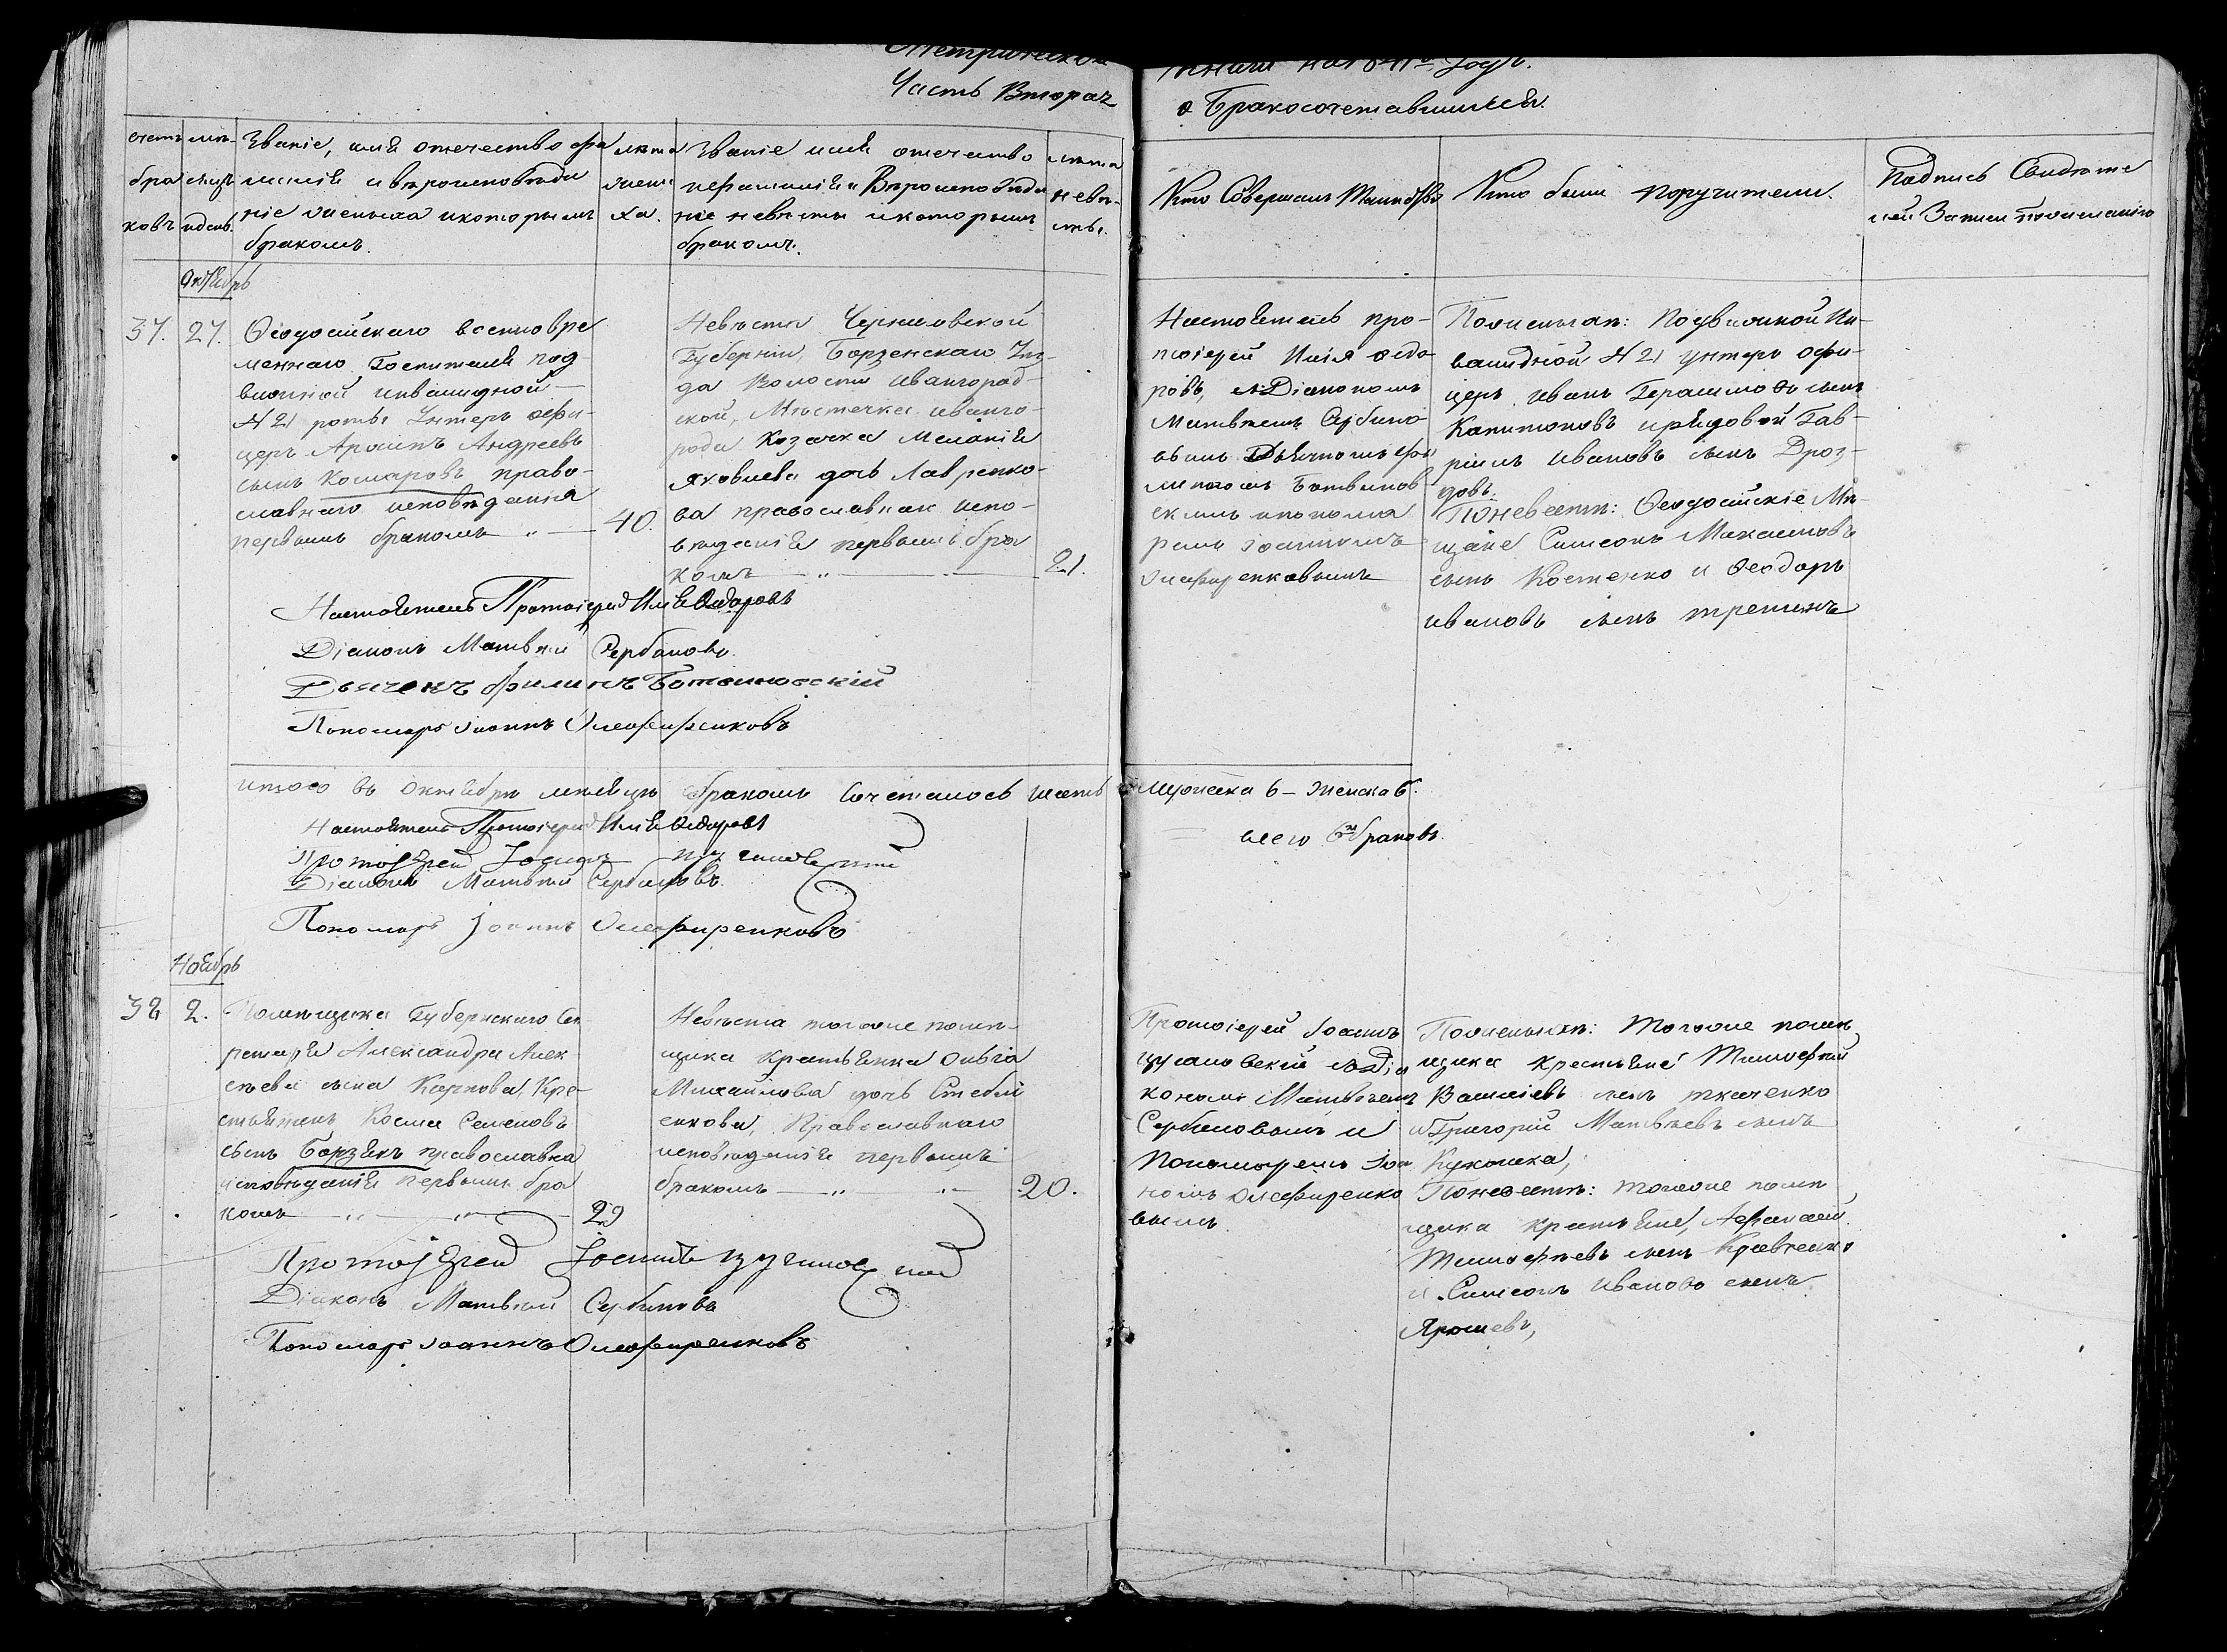 Метрической
Часть Вторая
книги на 1841й Годъ.
о Бракосочетавшихся.
счетъ бра ковъ
мѣ- сяцъ и день.
Званіе, имя отечество фа
милія и вѣроисповѣда
ніе жениха и которымъ
бракомъ.
лѣта жени ха.
Званіе имя отечество
и фамилія и Вѣроисповѣда
ніе невѣсты и которымъ
бракомъ.
лѣта невѣ- сты.
Кто Совершалъ Таинство
Кто были поручители.
Подпись Свидѣте
лей Записи по желанію
Октябрь
37. 27.
Ѳеодосійскаго военновре
меннаго Госпиталя под
вижной инвалидной
N 21 роты Унтеръ офи-
церъ Архипъ Андреевъ
сынъ Комаровъ право-
славнаго исповѣданія
первымъ бракомъ „ — 40.
Невѣста Черниговской
Губерніи, Борзенскаго Уѣз-
да Волости Ивангород-
ской, Мѣстечка иванго-
рода Козачка Меланія
Яковлева дочь Лавренко-
ва православнаго испо-
вѣданія первымъ бра
комъ — „ — 21.
Настоятель про-
тоіерей Илія Ѳедо
ровъ, съ Діакономъ
Матвѣемъ Сербино
вымъ Дьячкомъ Фи
липомъ Ботвинов
скимъ и понома
ремъ Іоанномъ
Олефиренковымъ
По женихѣ: Подвижной Ин-
валидной N 21 унтеръ офи-
церъ Иванъ Герасимовъ сынъ
Капитоновъ и рядовой Гав-
ріилъ Ивановъ сынъ Дроз-
довъ.
По невѣстѣ: Ѳеодосійскіе Мѣ-
щане Симеонъ Михайловъ
сынъ Костенко и Ѳеодоръ
ивановъ сынъ третякъ
Настоятель Протоіерей Илія Ѳедоровъ
Діаконъ Матвѣй Сербиновъ.
Дьячекъ Филипъ Ботвиновскій
Пономарь Іоаннъ Олефиренковъ
итого въ Октябрѣ мѣсяцѣ бракомъ сочеталось шесть мужеска 6 – женска 6.
всего 6ть браковъ.
Настоятель Протоіерей Илія Ѳедоровъ
Протоіерей Іоаннъ
Діаконъ Матвѣй Сербиновъ.
Пономарь Іоаннъ Олефиренковъ
Ноябрь
38 2.
Помѣщика Губернскаго Сек
ретаря Александра Алек
сѣева сына Карпова, Кре-
стьянинъ Косма Семеновъ
сынъ Борзякъ православна
исповѣданія первымъ бра
комъ — „ — „ — 29
Невѣста тогоже помѣ-
щика крестьянка Ольга
Михайлова дочь Стебли
енкова, Православнаго
исповѣданія первымъ
бракомъ — „ — „ — 20.
Протоіерей Іоаннъ
съ Діа
кономъ Матвѣемъ
Сербиновымъ и
Пономаремъ Іоа
номъ Олефиренко
вымъ.
По женихѣ: Тогоже помѣ
щика крестьяне Тимофей
Василіевъ сынъ ткаченко
и Григорій Матвѣевъ сынъ
По невѣстѣ: тогоже помѣ
щика крестьяне, Афанасій
Тимофѣевъ сынъ Кравченко
и Симеонъ Ивановъ сынъ
Ярошевъ,
Протоіерей Іоаннъ
Діаконъ Матвѣй Сербиновъ
Пономарь Іоаннъ Олефиренковъ